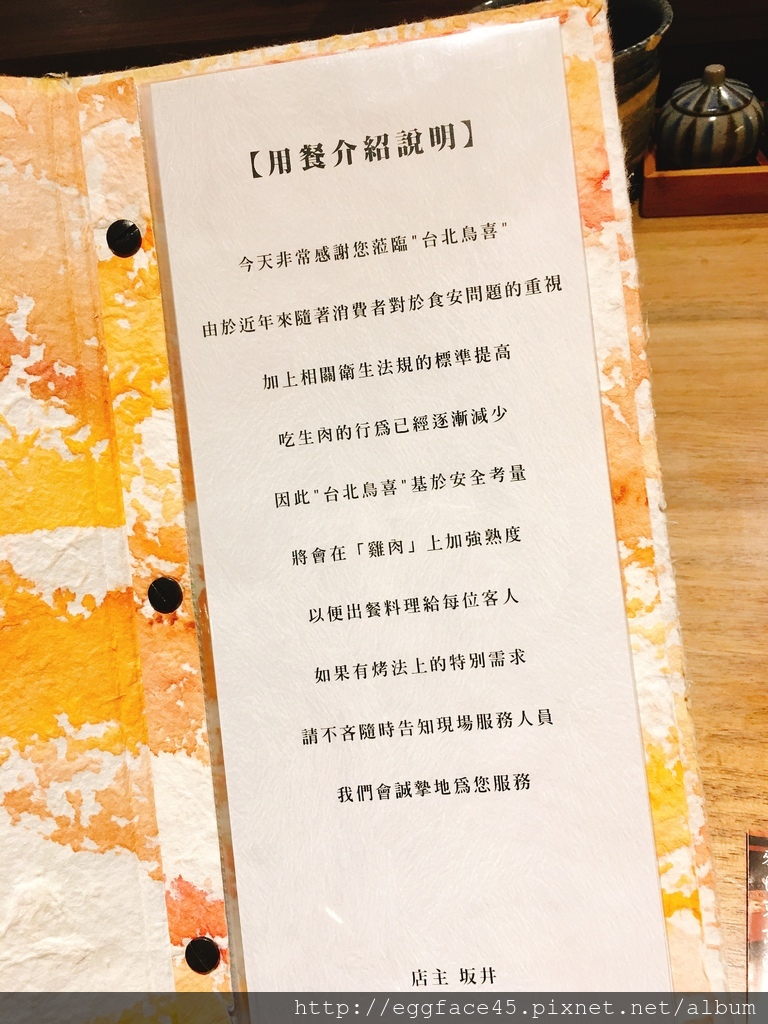 【用餐介紹說明】
今天非常感謝您蒞臨"台北鳥喜"
由於近年來隨著消費者對於食安問題的重視
加上相關衛生法規的標準提高
吃生肉的行為已經逐漸減少
因此"台北鳥喜"基於安全考量
將會在「雞肉」上加強熟度
以便出餐料理給每位客人
如果有烤法上的特別需求
請不吝隨時告知現場服務人員
我們會誠摯地為您服務
店主 坂井
http://eggface45.pixnet.net/album